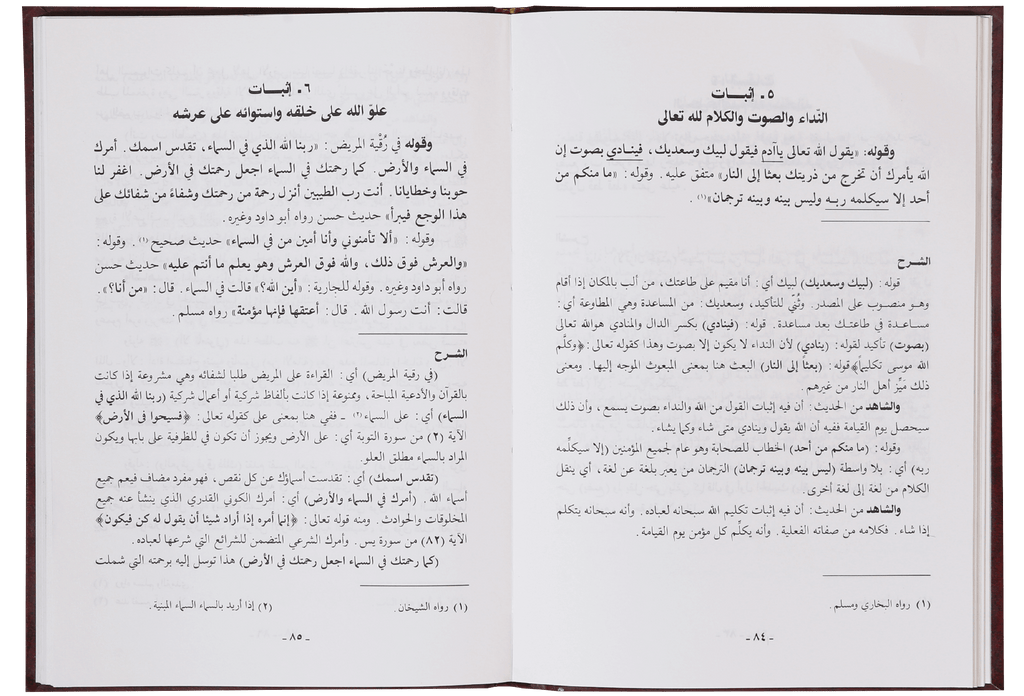 ٥ ـ إثبـــات
النداء والصوت والكلام لله تعالى
وقوله: «يقول الله تعالى ياآدم فيقول لبيك وسعديك، فينادي بصوت إن
الله يأمرك أن تخرج من ذريتك بعثا إلى النار» متفق عليه. وقوله: «ما منكم من
أحد إلا سيكلمه ربه وليس بينه وبينه ترجمان»(١).
الشـرح
قوله: (لبيك وسعديك) لبيك أي: أنا مقيم على طاعتك، من ألب بالمكان إذا أقام
وهو منصوب على المصدر. وثُنِّي للتأكيد، وسعديك: من المساعدة وهي المطاوعة أي:
مساعدة في طاعتك بعد مساعدة. قوله: (فينادي) بكسر الدال والمنادي هوالله تعالى
(بصوت) تأكيد لقوله: (ينادي) لأن النداء لا يكون إلا بصوت وهذا كقوله تعالى: ﴿وكلّم
الله موسى تكليما﴾ قوله: (بعثاً إلى النار) البعث هنا بمعنى المبعوث الموجه إليها. ومعنى
ذلك مَيِّز أهل النار من غيرهم.
والشاهد من الحديث: أن فيه إثبات القول من الله والنداء بصوت يسمع، وأن ذلك
سيحصل يوم القيامة ففيه أن الله يقول وينادي متى شاء وكما يشاء.
وقوله: (ما منكم من أحد) الخطاب للصحابة وهو عام لجميع المؤمنين (إلا سيكلّمه
ربه) أي: بلا واسطة (ليس بينه وبينه ترجمان) الترجمان من يعبر بلغة عن لغة، أي ينقل
الكلام من لغة إلى لغة أخرى.
والشاهد من الحديث: أن فيه إثبات تكليم الله سبحانه لعباده. وأنه سبحانه يتكلم
إذا شاء. فكلامه من صفاته الفعلية. وأنه يكلّم كل مؤمن يوم القيامة.
(١) رواه البخاري ومسلم.
ـ ٨٤ ـ
٦ ـ إثبـــات
علوّ الله على خلقه واستوائه على عرشه
وقوله في رُقْية المريض: «ربنا الله الذي في السماء، تقدس اسمك. أمرك
في السماء والأرض. كما رحمتك في السماء اجعل رحمتك في الأرض. اغفر لنا
حوبنا وخطايانا. أنت رب الطيبين أنزل رحمة من رحمتك وشفاءً من شفائك على
هذا الوجع فيبرأ» حديث حسن رواه أبو داود وغيره.
وقوله: «ألا تأمنوني وأنا أمين من في السماء» حديث صحيح(١). وقوله:
«والعرش فوق ذلك، والله فوق العرش وهو يعلم ما أنتم عليه» حديث حسن
رواه أبو داود وغيره. وقوله للجارية: «أين الله؟» قالت في السماء. قال: «من أنا؟».
قالت: أنت رسول الله. قال: أعتقها فإنها مؤمنة» رواه مسلم.
الشرح
(في رقية المريض) أي: القراءة على المريض طلبا لشفائه وهي مشروعة إذا كانت
بالقرآن والأدعية المباحة، وممنوعة إذا كانت بألفاظ شركية أو أعمال شركية (ربنا الله الذي في
السماء) أي: على السماء(٢) ـ ففي هنا بمعنى على كقوله تعالى: ﴿فسيحوا في الأرض﴾
الآية (٢) من سورة التوبة أي: على الأرض ويجوز أن تكون في للظرفية على بابها ويكون
المراد بالسماء مطلق العلو.
(تقدس اسمك) أي: تقدست أسماؤك عن كل نقص، فهو مفرد مضاف فيعم جميع
أسماء الله. (أمرك في السماء والأرض) أي: أمرك الكوني القدري الذي ينشأ عنه جميع
المخلوقات والحوادث. ومنه قوله تعالى: ﴿إنما أمره إذا أراد شيئا أن يقول له كن فيكون﴾
الآية (٨٢) من سورة يس. وأمرك الشرعي المتضمن للشرائع التي شرعها لعباده.
(كما رحمتك في السماء اجعل رحمتك في الأرض) هذا توسل إليه برحمته التي شملت
(١) رواه الشيخان. (٢) إذا أريد بالسماء السماء المبنية.
ـ ٨٥ ـ